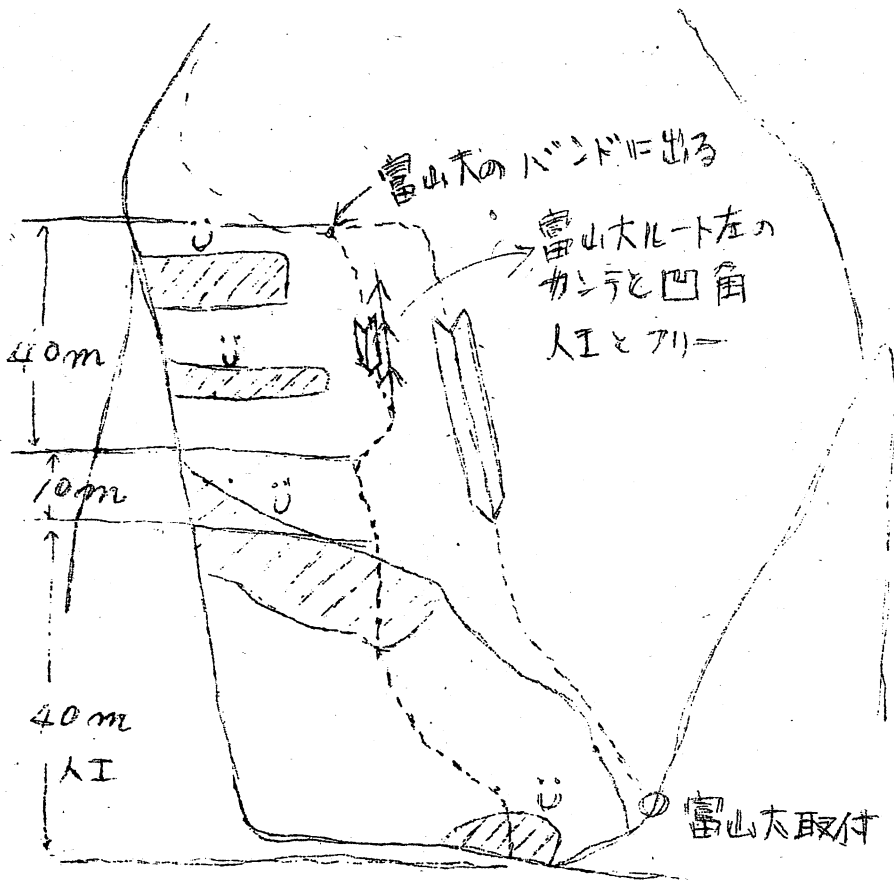 富山大のバンドに出る
富山大ルート左の
カンテと凹角
人工とフリー
40m
10m
40m
人工
富山大取付